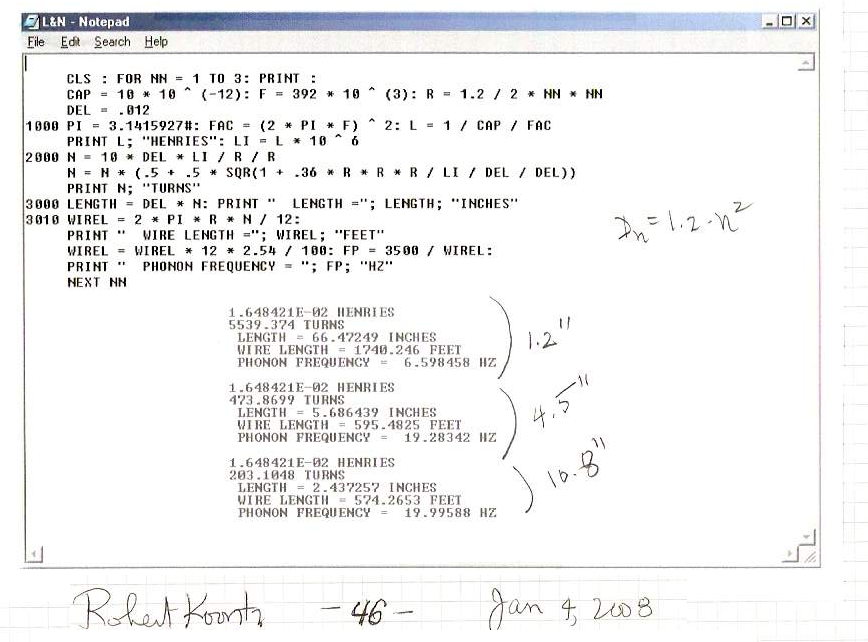 L&N - Notepad
File Edit Search Help
CLS : FOR NN = 1 TO 3: PRINT :
CAP = 10 * 10 ^ (-12): F = 392 * 10 ^ (3): R = 1.2 / 2 * NN * NN
DEL = .012
1000 PI = 3.1415927#: FAC = (2 * PI * F) ^ 2: L = 1 / CAP / FAC
PRINT L; "HENRIES": LI = L * 10 ^ 6
2000 N = 10 * DEL * LI / R / R
N = N * (.5 + .5 * SQR(1 + .36 * R * R * R / LI / DEL / DEL))
PRINT N; "TURNS"
3000 LENGTH = DEL * N: PRINT "  LENGTH ="; LENGTH; "INCHES"
3010 WIREL = 2 * PI * R * N / 12:
PRINT "  WIRE LENGTH ="; WIREL; "FEET"
WIREL = WIREL * 12 * 2.54 / 100: FP = 3500 / WIREL:
PRINT "  PHONON FREQUENCY = "; FP; "HZ"
NEXT NN
Dn = 1.2 · n²
1.648421E-02 HENRIES
5539.374 TURNS
LENGTH = 66.47249 INCHES
WIRE LENGTH = 1740.246 FEET
PHONON FREQUENCY =  6.598458 HZ
1.2"
1.648421E-02 HENRIES
473.8699 TURNS
LENGTH = 5.686439 INCHES
WIRE LENGTH = 595.4825 FEET
PHONON FREQUENCY =  19.28342 HZ
4.5"
1.648421E-02 HENRIES
203.1048 TURNS
LENGTH = 2.437257 INCHES
WIRE LENGTH = 574.2653 FEET
PHONON FREQUENCY =  19.99588 HZ
10.8"
Robert Koontz - 46 - Jan 4, 2008